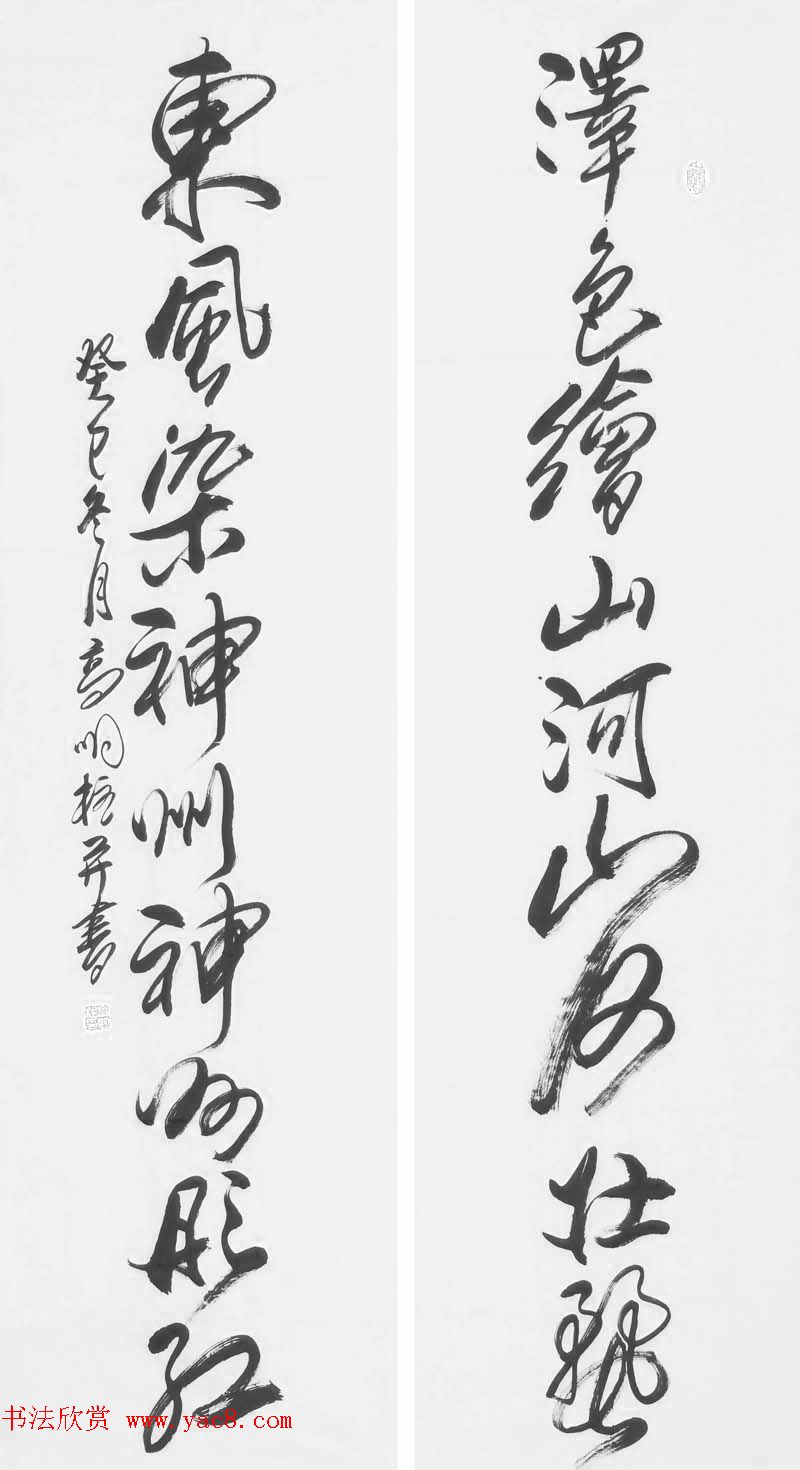 澤色繪山河山河壯
東風染神州神州彤紅
癸巳冬月高明并書
书法欣赏 www.yac8.com